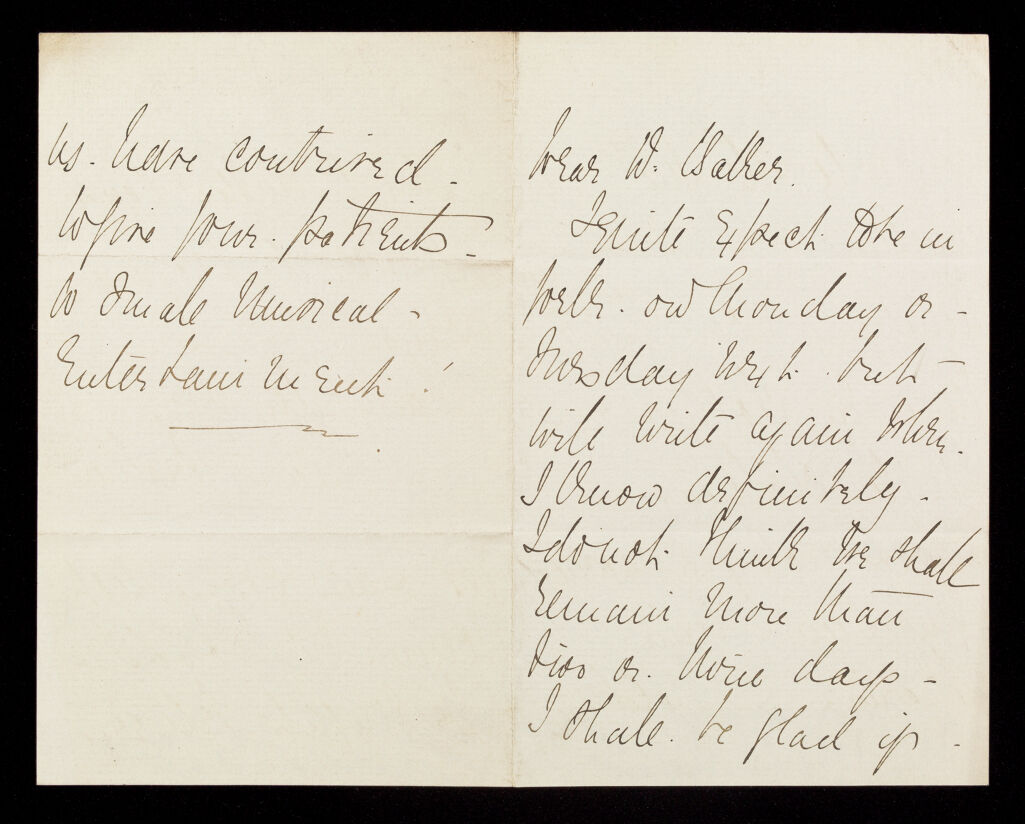 us. have contrived -
to give your. patients -
a Small Musical -
Entertainment!
Dear Dr. Walker.
I quite Expect to be in
on Monday or -
Tuesday next. but -
will write again when.
I know definitely -
I do not think we shall
remain more than
two or. three days -
I shall. be glad if -